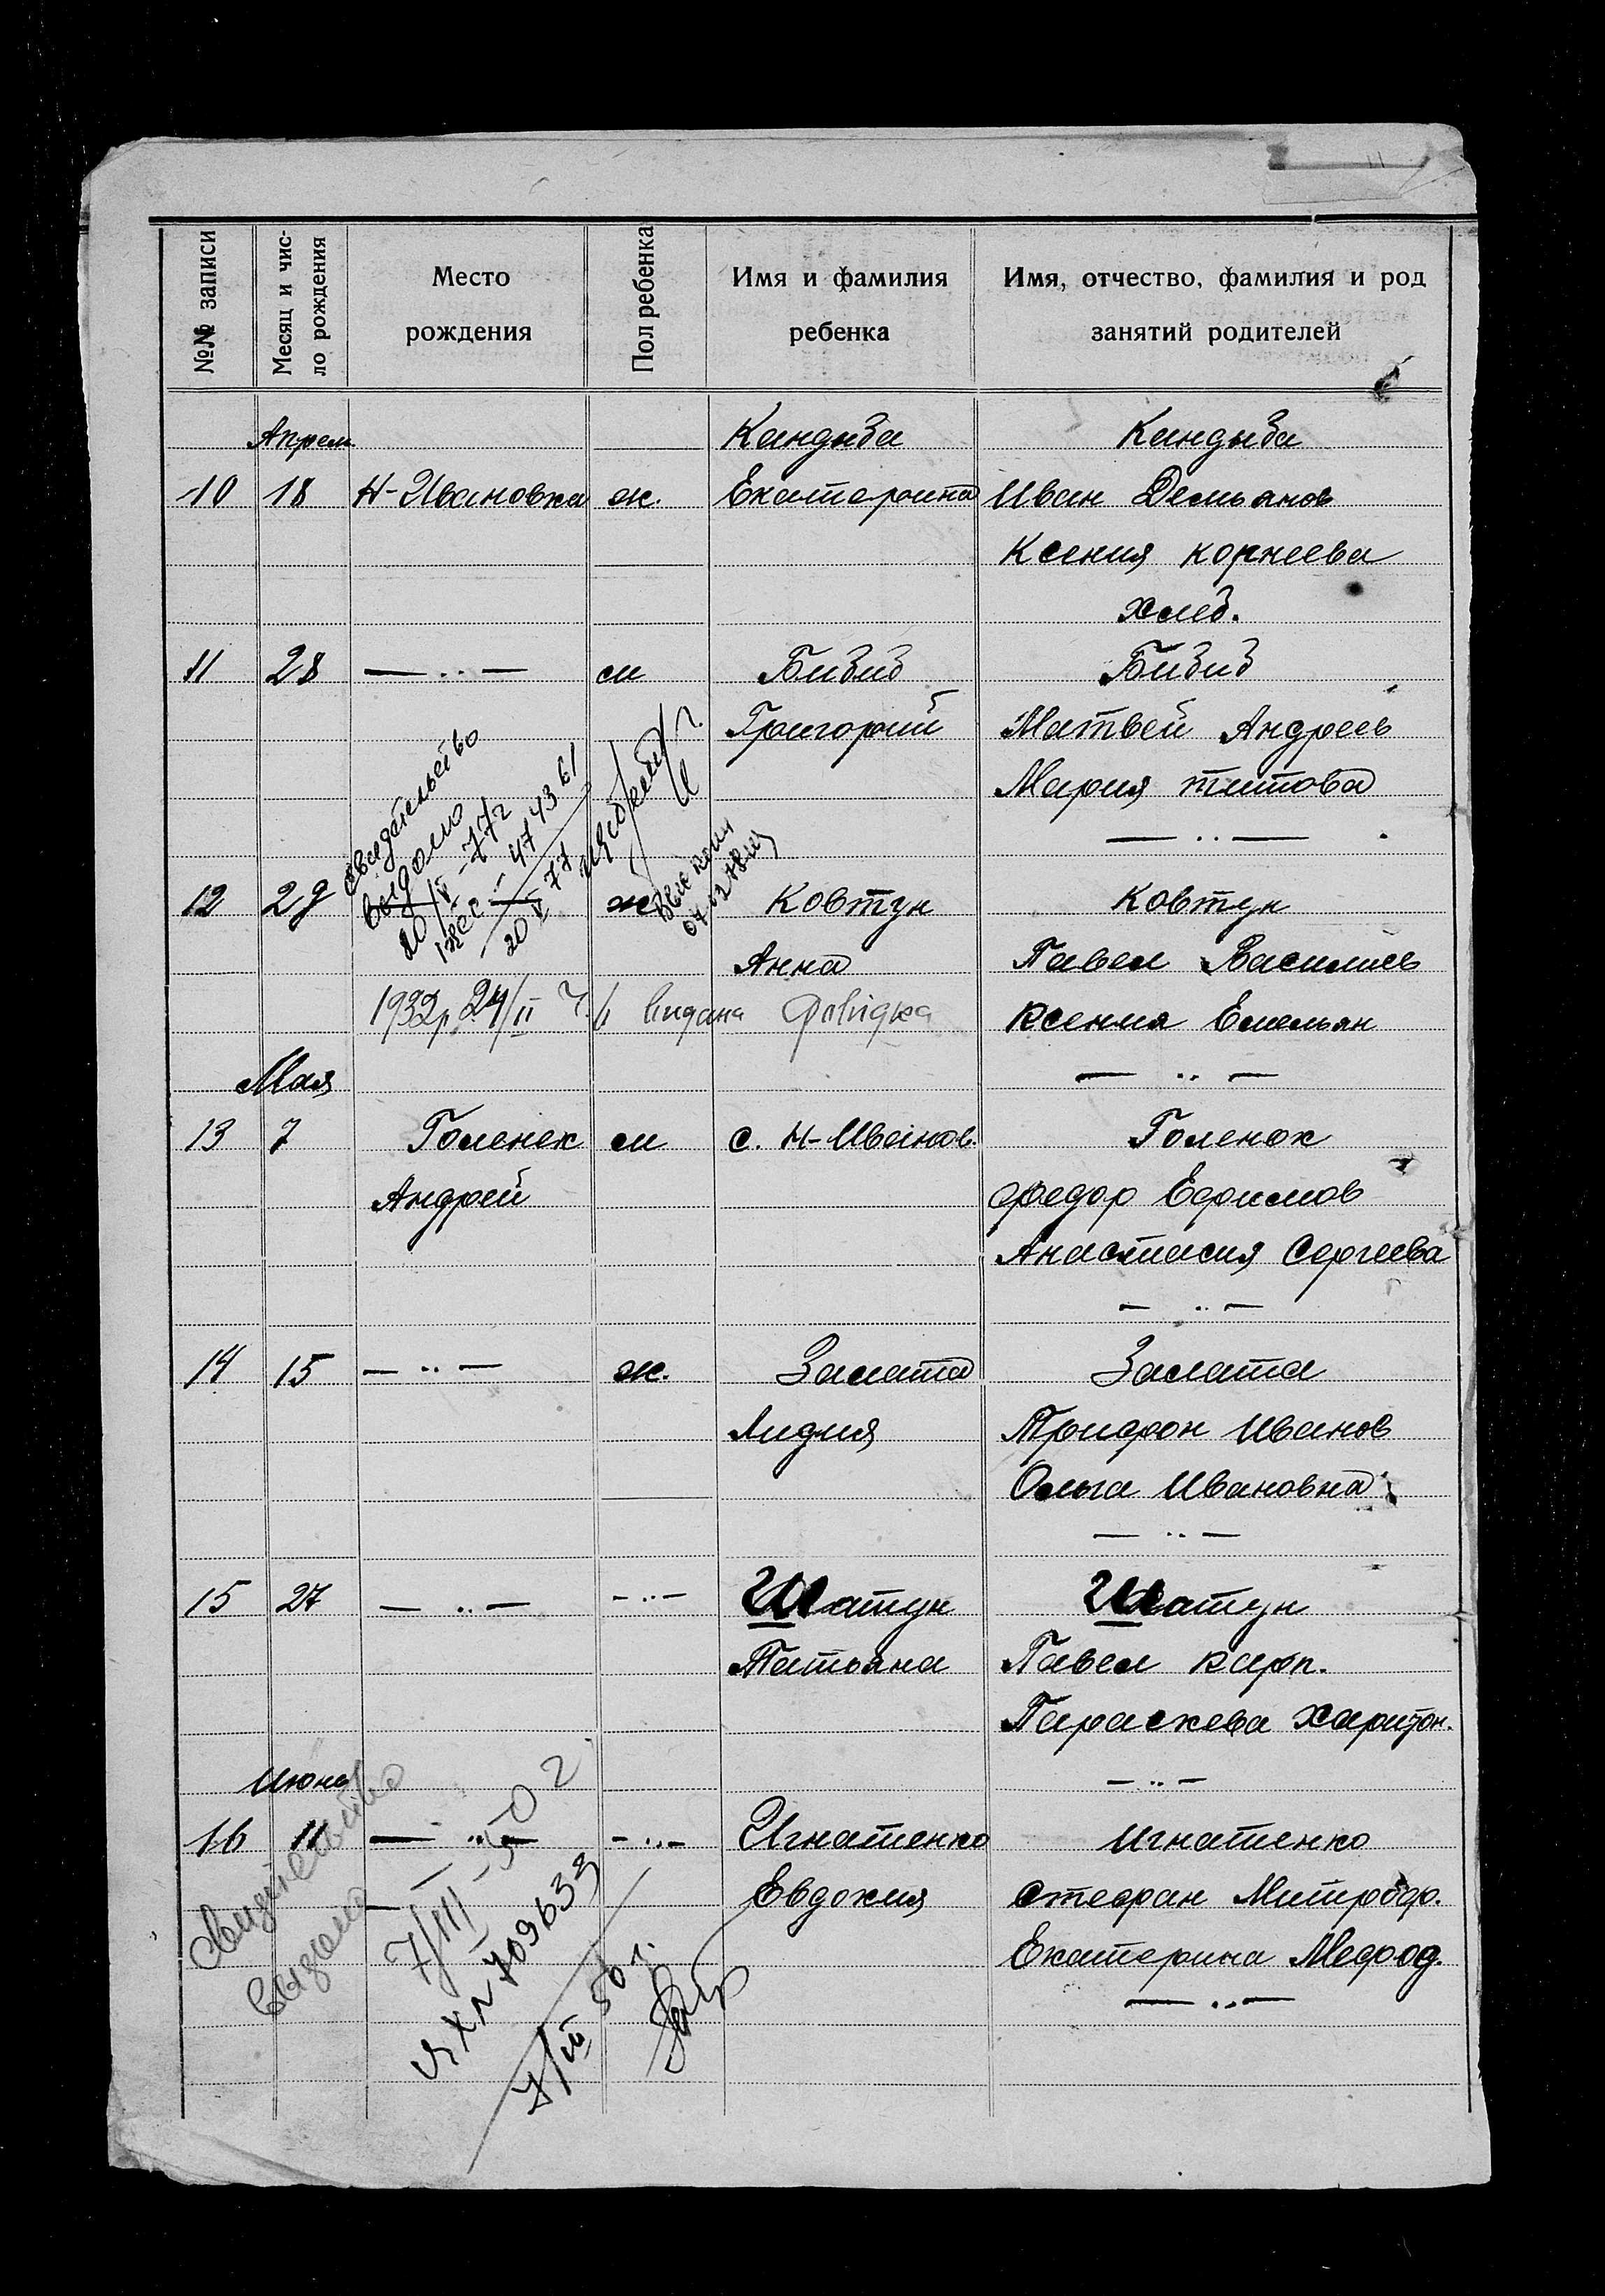 №№ записи
Месяц и чис-
ло рождения
Место
рождения
Пол ребенка
Имя и фамилия
ребенка
Имя, отчество, фамилия и род
занятий родителей
Апрель Кандыба Кандыба
10 18 Н-Ивановка ж. Екатерина Иван Демьянов
Ксения Корнеева
хлеб.
11 28 — ·· — м Бибиб Бибиб
Григорий Матвей Андреев
Мария Титова
— ·· —
свидетельство
выдано
20/V-77г
474361
20 V 77
12 29 ж Ковтун Ковтун
Анна Павел Васильев
1932р 24/II видана довідка Ксения Емельян
Мая — ·· —
13 7 Голенек м с. Н-Иванов. Голенок
Андрей Федор Ефимов
Анастасия Сергеева
— ·· —
14 15 — ·· — ж. Замата Замата
Лидия Трифон Иванов
Ольга Ивановна
— ·· —
15 27 — ·· — — ·· — Шатун Шатун
Татьяна Павел Карп.
Параскева Харитон.
Июнь — ·· —
16 11 — ·· — — ·· — Игнатенко Игнатенко
Евдокия Стефан Митроф.
Екатерина Мефод.
— ·· —
Свидетельство
выдано
7/III-50г.
709633
7/III 50г.